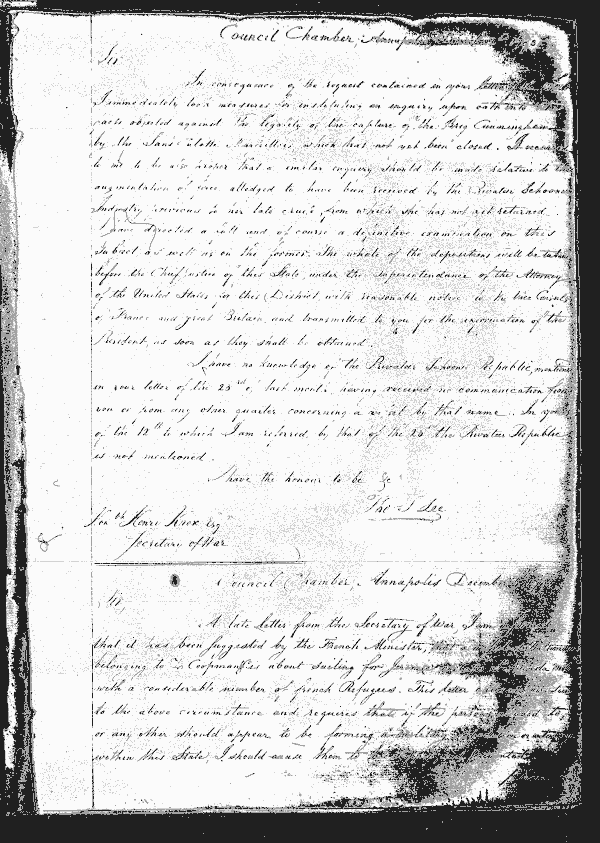 Council Chamber, Annapolis
Sir
In consequence of the request contained in your letter
I immediately took measures for instituting an enquiry upon oath into
facts objected against the legality of the capture of the Brig Cunningham
by the Sans Culotte Marseilles, which has not yet been closed. It
to me to be also proper that a similar enquiry should be made relative to the
augmentation of force alledged to have been received by the Privateer Schooner
Industry previous to her late cruise from which she has not yet returned.
I have directed a full and of course a definitive examination on this
Subject as well as on the former. The whole of the depositions will be taken
before the Chief Justice of this State under the Superintendance of the Attorney
of the United States for this District with reasonable notice to the Vice Consuls
of France and great Britain, and transmitted to you for the information of the
President, as soon as they shall be obtained.
I have no knowledge of the Privateer Schooner Republic, mentioned
in your letter of the 25th of last month, having received no communication from
you or from any other quarter concerning a vessel by that name. In
of the 12th to which I am referred, by that of the 25th the Privateer Republic
is not mentioned.
I have the honour to be &c
Tho S Lee
Honble Henry Knox Esq
Secretary of War
Council Chamber, Annapolis December
Sir,
A late letter from the Secretary of War
that it has been suggested by the French Minister, that
belonging to Coopman is about sailing for
with a considerable number of french Refugees. This letter
to the above circumstance and requires that if the persons to
or any other should appear to be forming a military
within this State, I should cause them to be